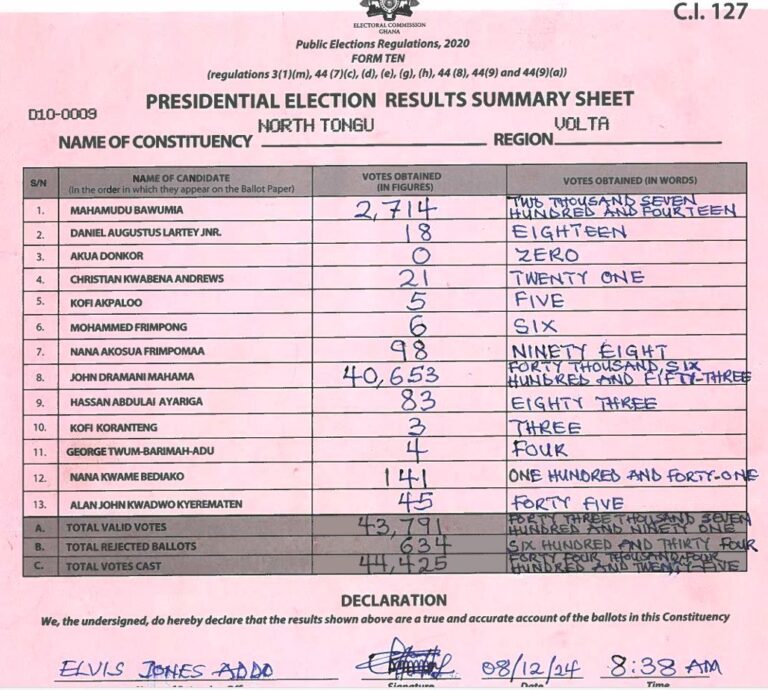 C.I. 127
ELECTORAL COMMISSION
GHANA
Public Elections Regulations, 2020
FORM TEN
(regulations 3(1)(m), 44 (7)(c), (d), (e), (g), (h), 44 (8), 44(9) and 44(9)(a))
PRESIDENTIAL ELECTION RESULTS SUMMARY SHEET
D10-0009
NAME OF CONSTITUENCY NORTH TONGU REGION VOLTA
S/N NAME OF CANDIDATE (In the order in which they appear on the Ballot Paper) VOTES OBTAINED (IN FIGURES) VOTES OBTAINED (IN WORDS)
1. MAHAMUDU BAWUMIA 2,714 TWO THOUSAND SEVEN HUNDRED AND FOURTEEN
2. DANIEL AUGUSTUS LARTEY JNR. 18 EIGHTEEN
3. AKUA DONKOR 0 ZERO
4. CHRISTIAN KWABENA ANDREWS 21 TWENTY ONE
5. KOFI AKPALOO 5 FIVE
6. MOHAMMED FRIMPONG 6 SIX
7. NANA AKOSUA FRIMPOMAA 98 NINETY EIGHT
8. JOHN DRAMANI MAHAMA 40,653 FORTY THOUSAND, SIX HUNDRED AND FIFTY-THREE
9. HASSAN ABDULAI AYARIGA 83 EIGHTY THREE
10. KOFI KORANTENG 3 THREE
11. GEORGE TWUM-BARIMAH-ADU 4 FOUR
12. NANA KWAME BEDIAKO 141 ONE HUNDRED AND FORTY-ONE
13. ALAN JOHN KWADWO KYEREMATEN 45 FORTY FIVE
A. TOTAL VALID VOTES 43,791 FORTY THREE THOUSAND SEVEN HUNDRED AND NINETY ONE
B. TOTAL REJECTED BALLOTS 634 SIX HUNDRED AND THIRTY FOUR
C. TOTAL VOTES CAST 44,425 FORTY FOUR THOUSAND FOUR HUNDRED AND TWENTY-FIVE
DECLARATION
We, the undersigned, do hereby declare that the results shown above are a true and accurate account of the ballots in this Constituency
ELVIS JONES ADDO 08/12/24 8:38 AM
Signature Date Time